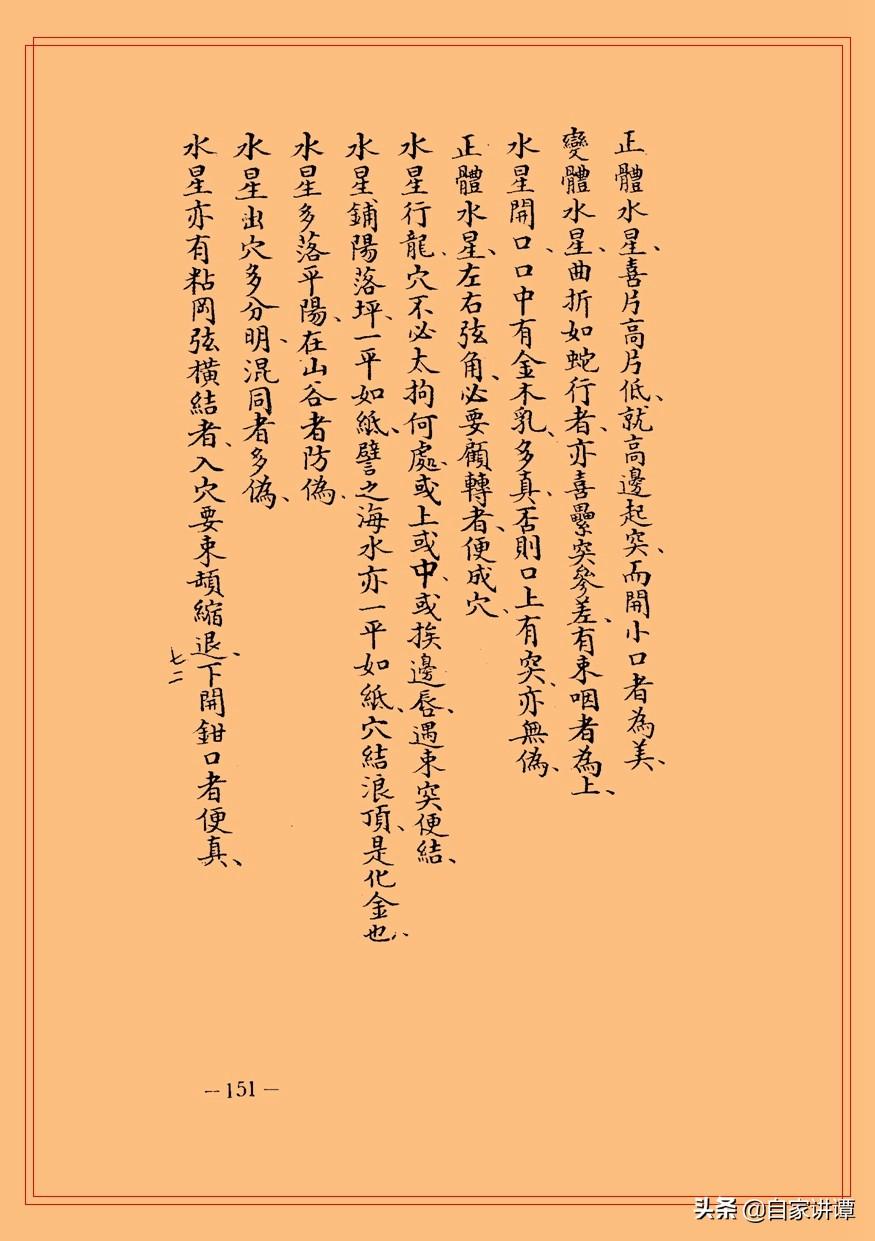 正體水星、喜片高片低、就高邊起突、而開小口者為美、
變體水星、曲折如蛇行者、亦喜纍突參差、有束咽者為上、
水星開口、口中有金木乳、多真、否則口上有突、亦無偽、
正體水星、左右弦角、必要顧轉者、便成穴、
水星行龍、穴不必太拘何處、或上或中、或挨邊唇、遇束突便結、
水星鋪陽落坪、一平如紙、譬之海水亦一平如紙、穴結浪頂、是化金也、
水星多落平陽、在山谷者防偽、
水星出穴多分明、混同者多偽、
水星亦有粘岡弦橫結者、入穴要束頡縮退、下開鉗口者便真、
七二
—151—
头条 @自家讲谭